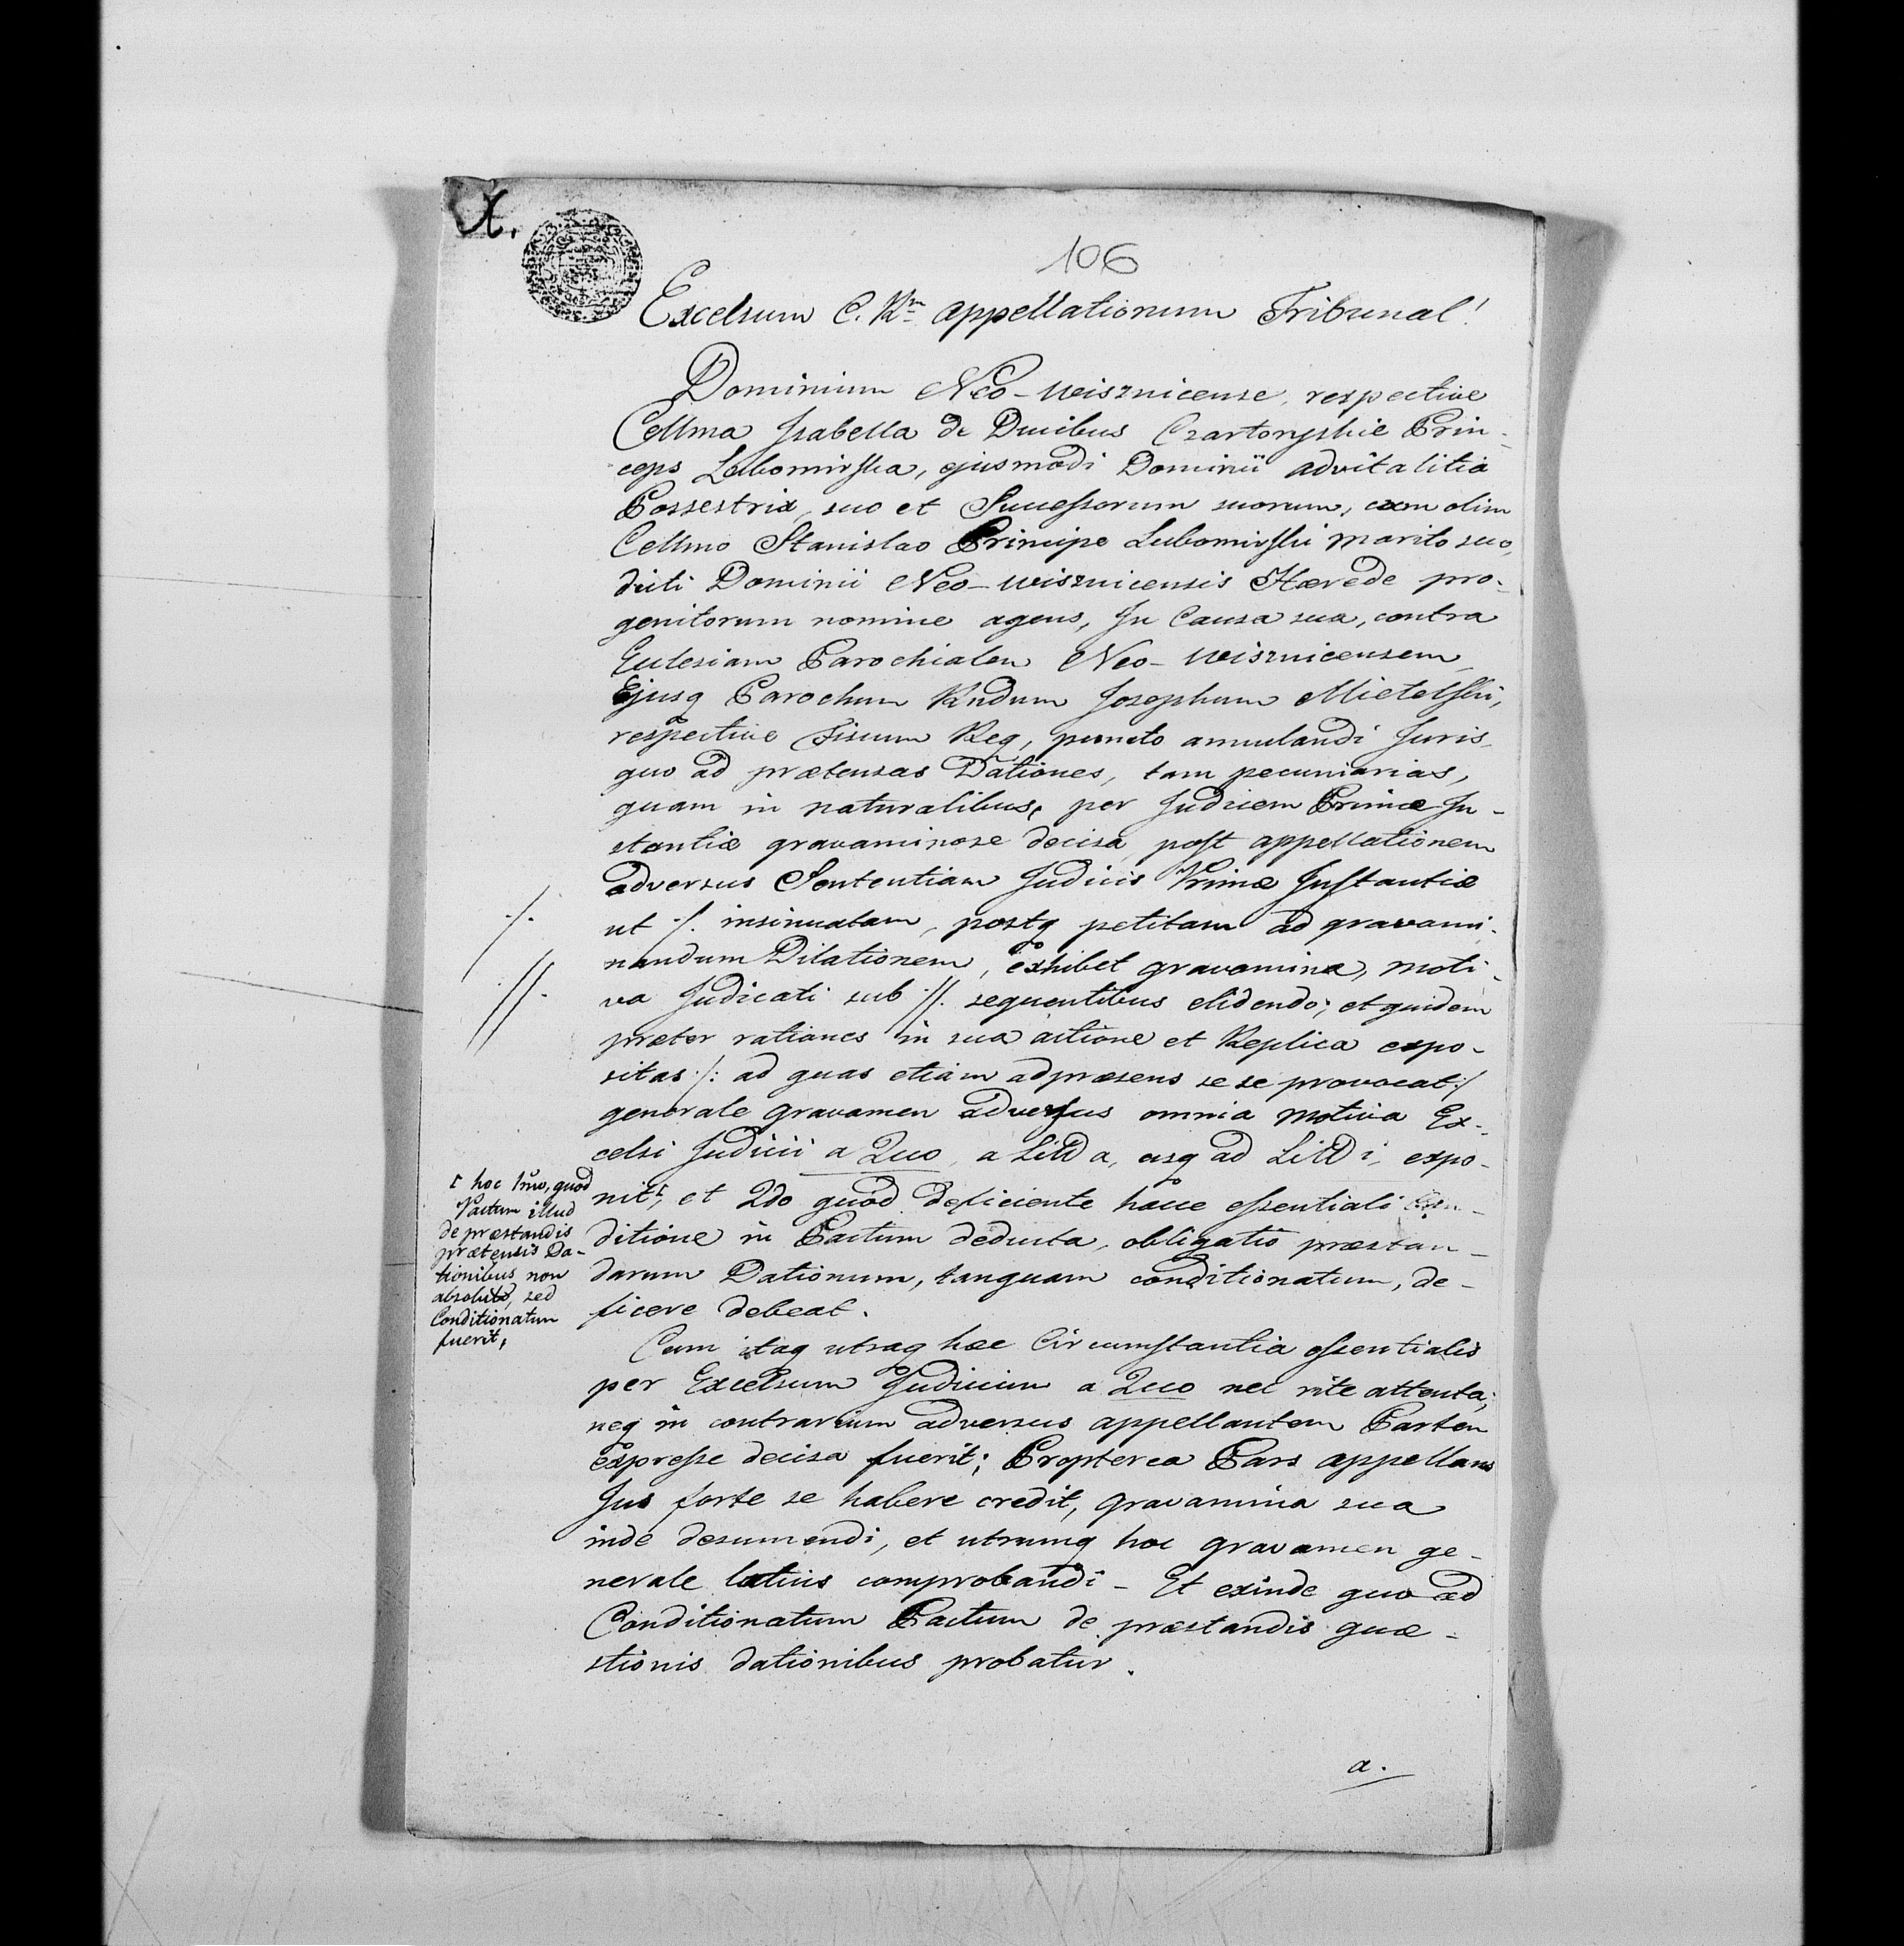 X.
106
Excelsum C. Rm appellationum Tribunal!
Dominium Neo-Wisznicense, respective
Cellma Isabella de Ducibus Czartoryskie Prin-
ceps Lubomirska, ejusmodi Dominii advitalitia
Possestrix, suo et Successorum suorum, cum olim
Cellmo Stanislao Principe Lubomirski marito suo,
dicti Dominii Neo-Wisznicensis Hærede pro-
genitorum nomine agens, In Causa sua, contra
Eclesiam Parochialem Neo-Wisznicensem
Ejusq Parochum Rndum Josephum Mietelski,
respective Fiscum Reg, puncto annulandi Juris
quo ad prætensas Dationes, tam pecuniarias,
quam in naturalibus, per Judicem Primæ In-
stantiæ gravaminose decisa, post appellationem
adversus Sententiam Judicis Primæ Instantiæ
./.
ut ./. insinuatam, postq petitam ad gravami-
nandum Dilationem, exhibet gravamina, moti-
.//.
va Judicati sub .//. sequentibus elidendo; et quidem
præter rationes in sua actione et Replica expo-
sitas /: ad quas etiam adpræsens se se provocat :/
generale gravamen adversus omnia motiva Ex-
celsi Judicii a Quo, a Litt a, usq ad Litt i, expo-
nit, et 2do quod deficiente hacce essentiali Con-
ditione in Pactum deducta, obligatio præstan-
darum Dationum, tanquam conditionatum, de-
ficere debeat.
hoc 1mo, quod
Pactum illud
de præstandis
prætensis Da-
tionibus non
absolute, sed
Conditionatum
fuerit,
Cum itaq utraq hæc Circumstantia essentialis
per Excelsum Judicium a Quo nec rite attenta,
neq in contrarium adversus appellantem Partem
expresse decisa fuerit; Propterea Pars appellans
Jus forte se habere credit, gravamina sua
inde desumendi, et utrumq hoc gravamen ge-
nerale latius comprobandi - Et exinde quo ad
Conditionatum Pactum de præstandis quæ-
stionis dationibus probatur.
a.